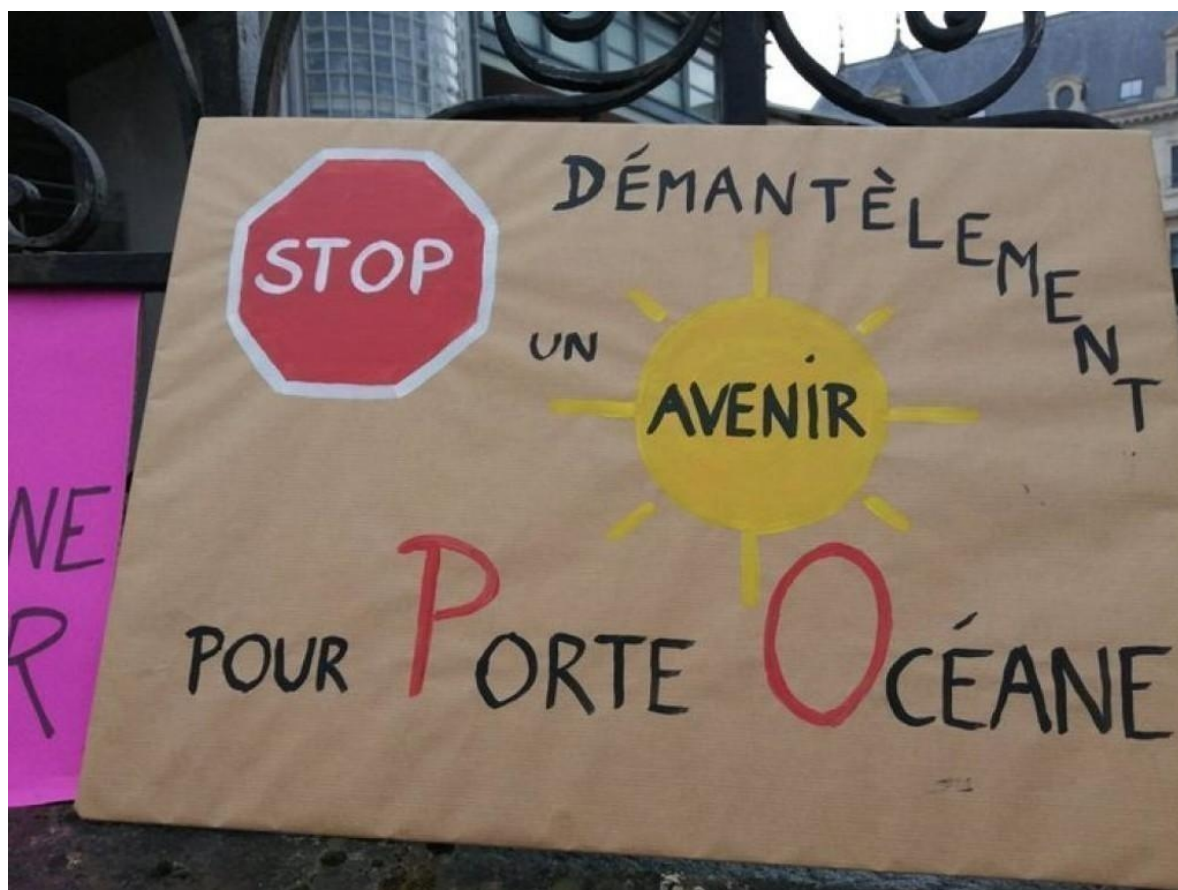 STOP DÉMANTÈLEMENT
UN AVENIR
POUR PORTE OCÉANE
NE
R